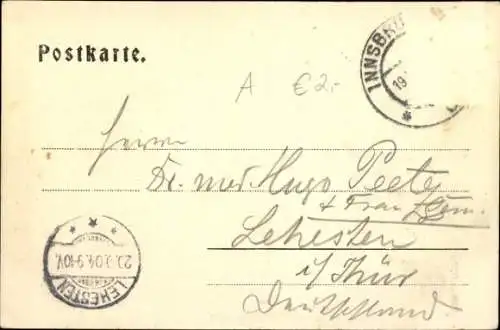 Postkarte.
INNSBRU
19
A €2,-
Herrn
Dr. med. Hugo Peetz
& Frau
Lehesten
i/Thür
Deutschland.
9-10V.
LEHESTEN